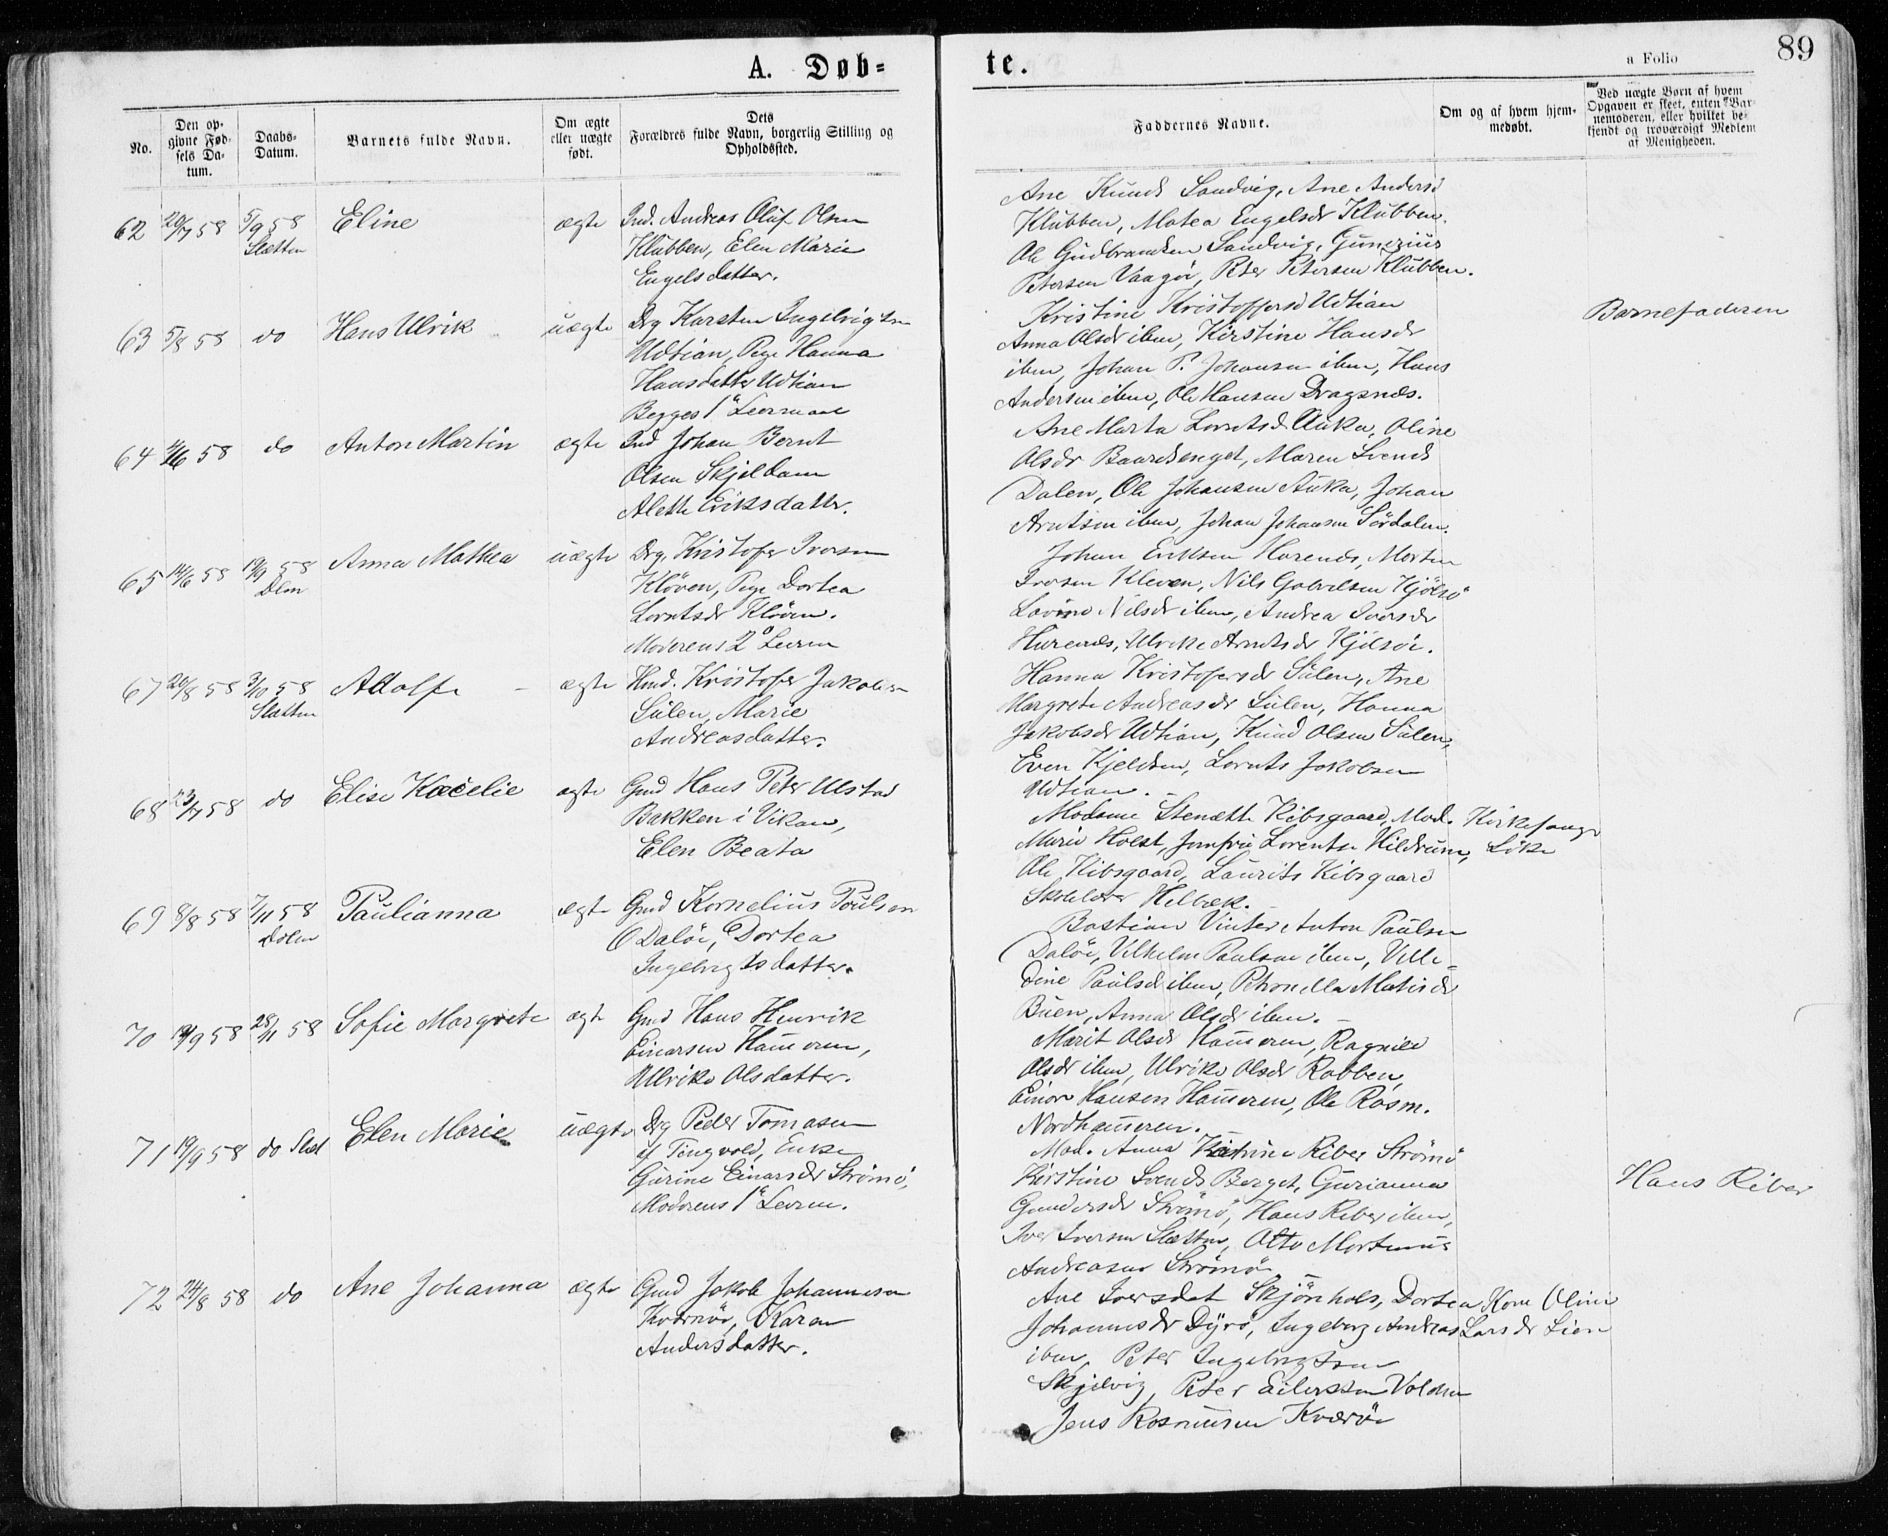 A. Døb=
te.
89
a Folio
No.
Den op-
givne Fød-
sels Da-
tum.
Daabs-
Datum.
Barnets fulde Navn.
Om ægte
eller uægte
født.
Dets
Forældres fulde Navn, borgerlig Stilling og
Opholdssted.
Faddernes Navne.
Om og af hvem hjem-
medøbt.
Ved uægte Børn af hvem
Opgaven er skeet, enten Bar-
nemoderen, eller hvilket be-
kjendt og troværdigt Medlem
af Menigheden.
62 20/7 58 5/9 58 Eline ægte Ind. Andreas Oluf Olsen
Slætten Klubben, Elen Marie
Engelsdatter.
Ane Knuds Sandvig, Ane Andersd
Klubben, Matea Engelsdr Klubben.
Ole Gudbrandsen Sandvig, Gunerius
Petersen Vaagø, Peter Petersen Klubben.
63 5/8 58 do Hans Ulrik uægte Drg Karsten Ingebrigtsn
Udtian, Pige Hanna
Hansdatter Udtian
Begges 1ste Leiermaal
Kristine Kristoffersd Udtian
Anna Olsdr ibm, Kirstine Hansdr
ibm, Johan P. Johansen ibm, Hans
Andersen ibm, Ole Hansen Dragsnæs.
Barnefaderen
64 58 do Anton Martin ægte Ind Johan Bernt
Olsen Skjeldam
Aleth Eriksdatter.
Ane Marta Lorntsd Auka, Oline
Olsdr Baardsenget, Maren Svends
Dalen, Ole Johansen Auka, Johan
Arntsen ibm, Johan Johansen Sørdalen.
65 14/6 58 19/9 58 Anna Mathea uægte Drg. Kristofer Iversen
Dlm Kløven, Pige Dortea
Lorntsdr Kløven.
Moderens 2 Leierm
Johan Eriksen Harends, Morten
Iversen Kleven, Nils Gabrielsen Kjølsø
Lovine Nilsdr ibm, Andrea Iversdr
Hurends, Ulrikke Arntsdr Kjølsøi.
67 20/8 58 3/10 58 Adolf ægte Hmd. Kristofer Jakobsn
Slætten Sulen, Marie
Andreasdatter.
Hanna Kristofersdr Sulen, Ane
Margrete Andreasdr Sulen, Hanna
Jakobsdr Udtian, Knud Olsen Sulen,
Even Kjeldsen, Lornts Jakobsen
Udtian.
68 23/7 58 do Elise Kæcelie ægte Gmd Hans Peter Ulstad
Bakken i Vikan,
Elen Beata
Madame Stenætte Kibsgaard, Mad. Kirkesanger
Marie Holst, Jomfru Lorentse Hildrum, Løke
Ole Kibsgaard, Laurits Kibsgaard
Skoleholder Helbæk.
69 8/8 58 7/11 58 Paulianna ægte Gmd Kornelius Poulsen
Dolm Daløi, Dortea
Ingebrigtsdatter.
Bastian Vinter, Anton Paulsen
Daløi, Vilhelm Paulsen ibm, Ville-
dine Paulsd ibm, Petronella Matisdr
Buen, Anna Olsdr ibm.
70 58 28/11 58 Sofie Margrete ægte Gmd Hans Henrik
Einarsen Hameren,
Ulrike Olsdatter.
Marit Olsdr Hameren, Ragnild
Olsdr ibm, Ulrike Olsdr Rabben,
Einar Hansen Hameren, Ole Rasm.
Nordhameren.
71 19/9 58 do Slæt Elen Marie uægte Drg Peder Tomasen
af Tingvold, Enke
Gurine Einarsdr Strømø,
Moderens 1ste Leierm.
Mad. Anna Katrine Riber Strømø
Kirstine Svends Berget, Gurianna
Gundersdr Strømø, Hans Riber ibm,
Iver Iversen Slætten, Otto Mortinus
Andreasen Strømø
Hans Riber
72 24/8 58 do Ane Johanna ægte Gmd Jakob Johannesen
Kværnø, Karen
Andersdatter.
Ane Iversdat Skjønhals, Dortea Kone Oline
Johannesdr Dyrø, Ingeborg Andreas Larsdr Lien
ibm, Peter Ingebrigtsen
Skjelvig, Peter Eilertsen Volden
Jens Rasmusen Kværø